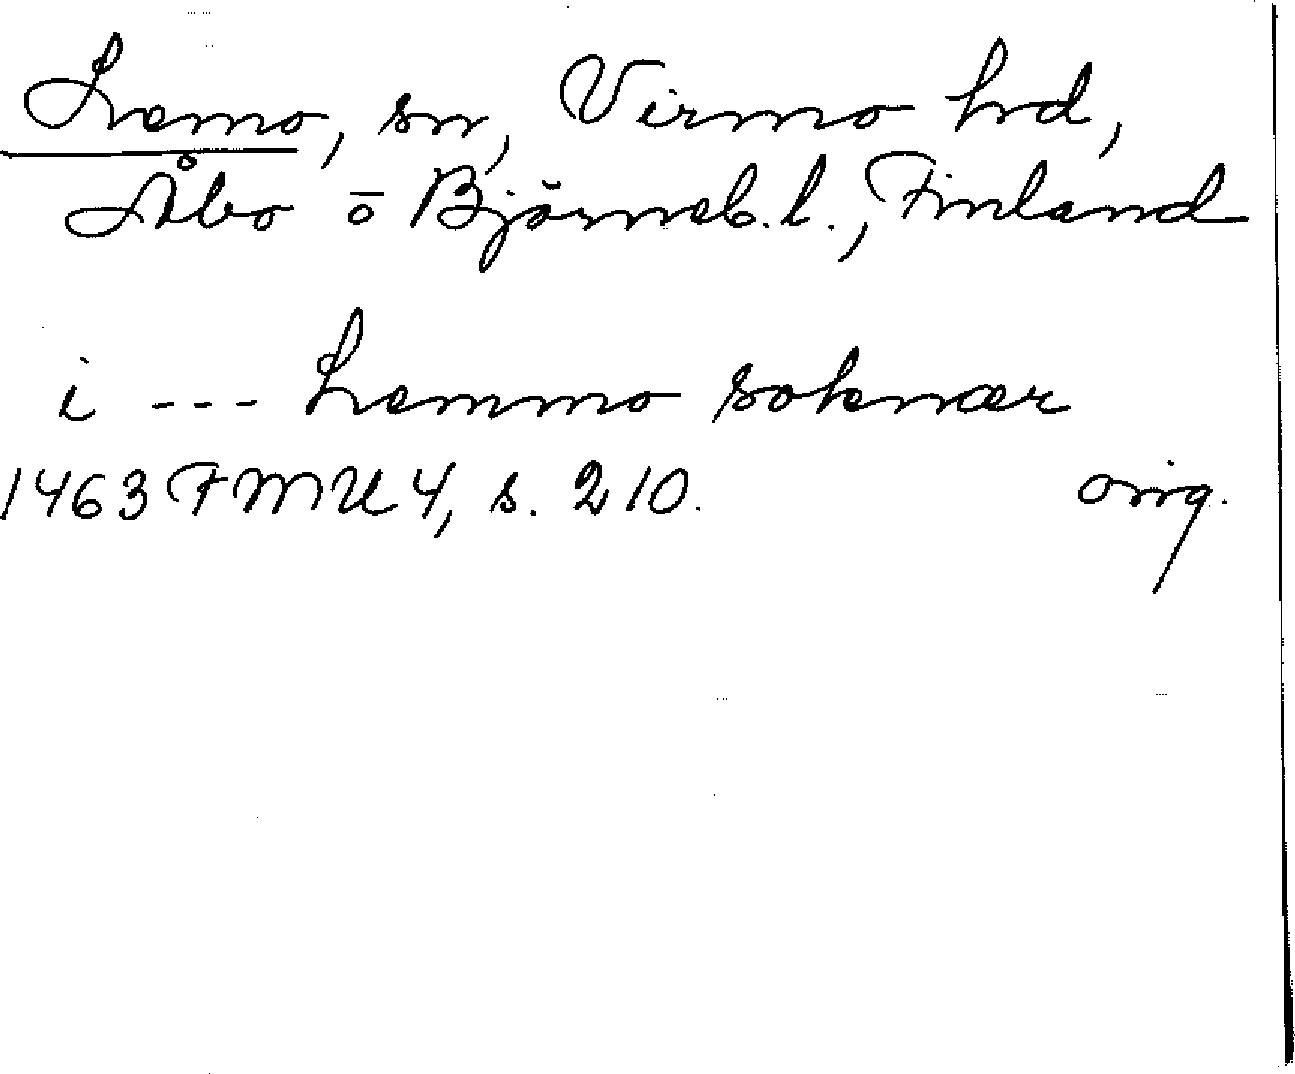 Lemo, sn, Virmo hd,
Åbo o Björneb. l., Finland
i --- Lemmo soknær
1463 FMU 4, s. 210. orig.